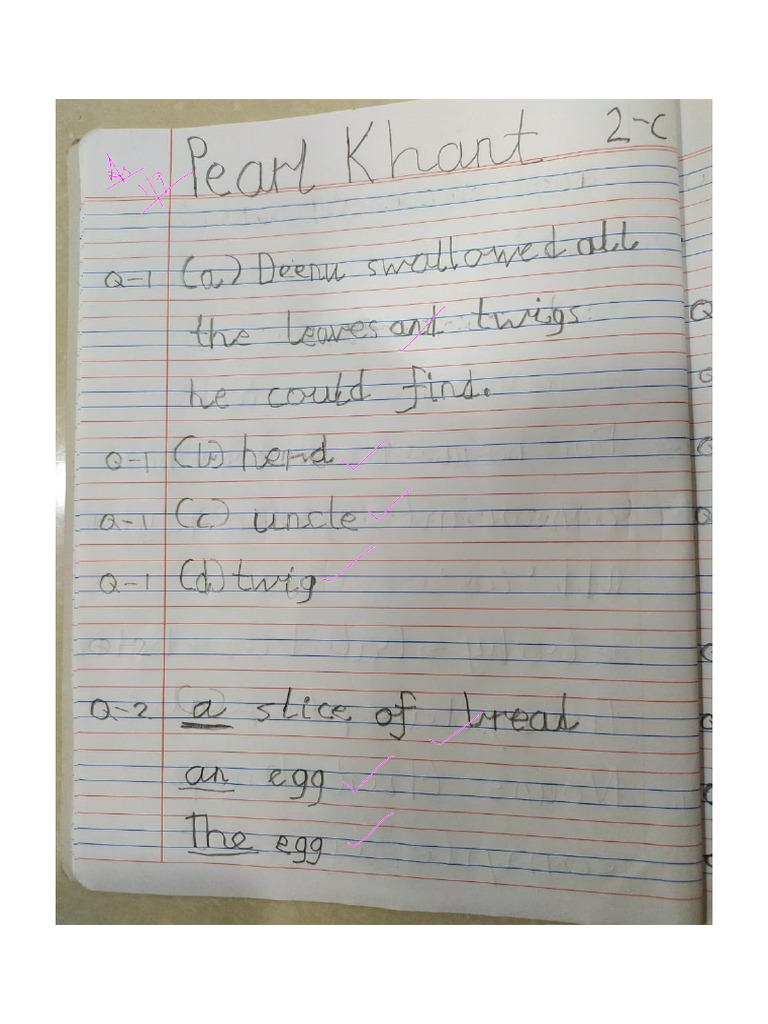 Pearl Khant 2-C
Q-1 (a) Deenu swallowed all
the leaves and twigs
he could find.
Q-1 (b) herd
Q-1 (c) uncle
Q-1 (d) twig
Q-2 a slice of bread
an egg
The egg